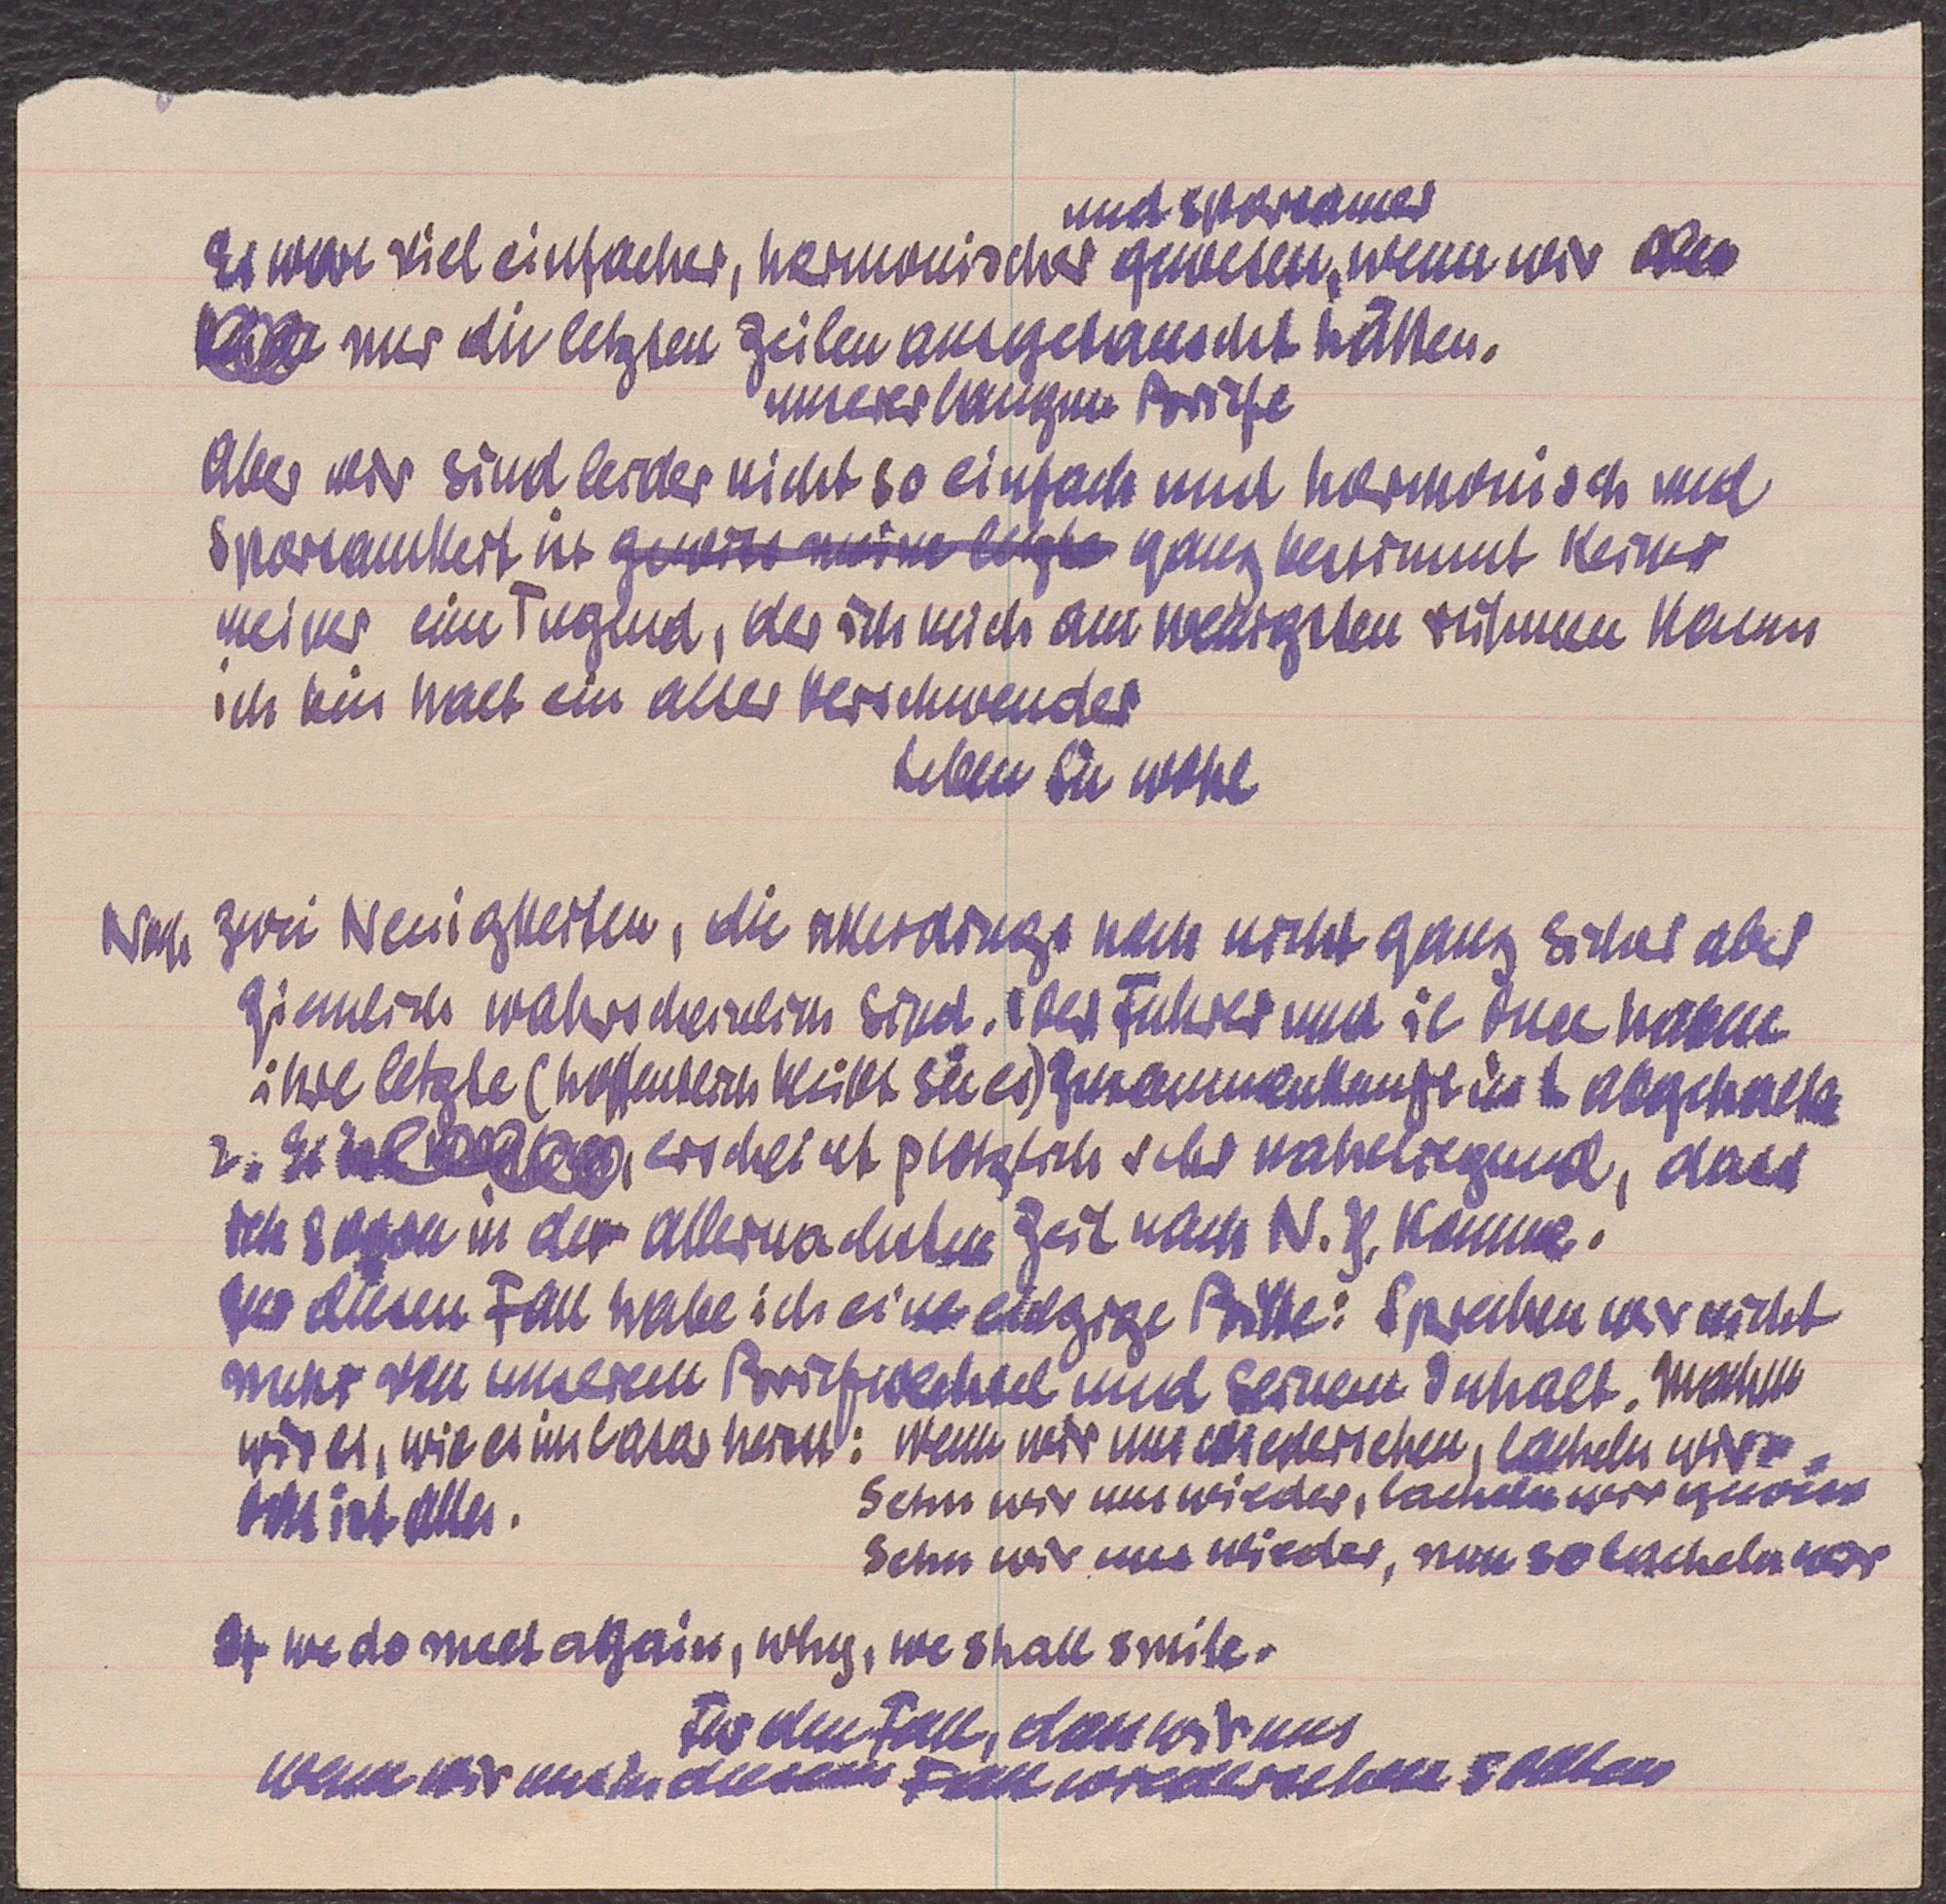 und sparsamer
Es wäre viel einfacher, harmonischer gewesen, wenn wir
nur die letzten Zeilen ausgetauscht hätten.
unserer langen Briefe
Aber wir sind leider nicht so einfach und harmonisch und
Sparsamkeit ist gewiss meine letzte ganz bestimmt keine
meiner eine Tugend, der ich mich am wenigsten rühmen kann
ich bin halt ein alter Verschwender
Leben Sie wohl
Noch zwei Neuigkeiten, die allerdings noch nicht ganz sicher aber
ziemlich wahrscheinlich sind. Der Führer und il Duce haben
ihre letzte (hoffentlich bleibt sie es) Zusammenkunft in abgehalten
2. Es erscheint plötzlich sehr naheliegend, dass
ich schon in der allernächsten Zeit nach N.Y. komme.
Für diesen Fall habe ich eine einzige Bitte: Sprechen wir nicht
mehr von unserem Briefwechsel und seinem Inhalt. Machen
wir es, wie es im Cäsar heisst: wenn wir uns wiedersehen, lächeln wir.
Das ist alles. Sehn wir uns wieder, lächeln wir gewiss
Sehn wir uns wieder, nun so lächeln wir
If we do meet again, why, we shall smile.
Für den Fall, dass wir uns
wenn wir uns in diesem Fall wiedersehen sollten